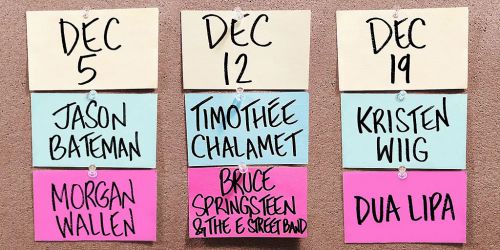 DEC
5
JASON
BATEMAN
MORGAN
WALLEN
DEC
12
TIMOTHÉE
CHALAMET
BRUCE
SPRINGSTEEN
& THE E STREET BAND
DEC
19
KRISTEN
WIIG
DUA LIPA